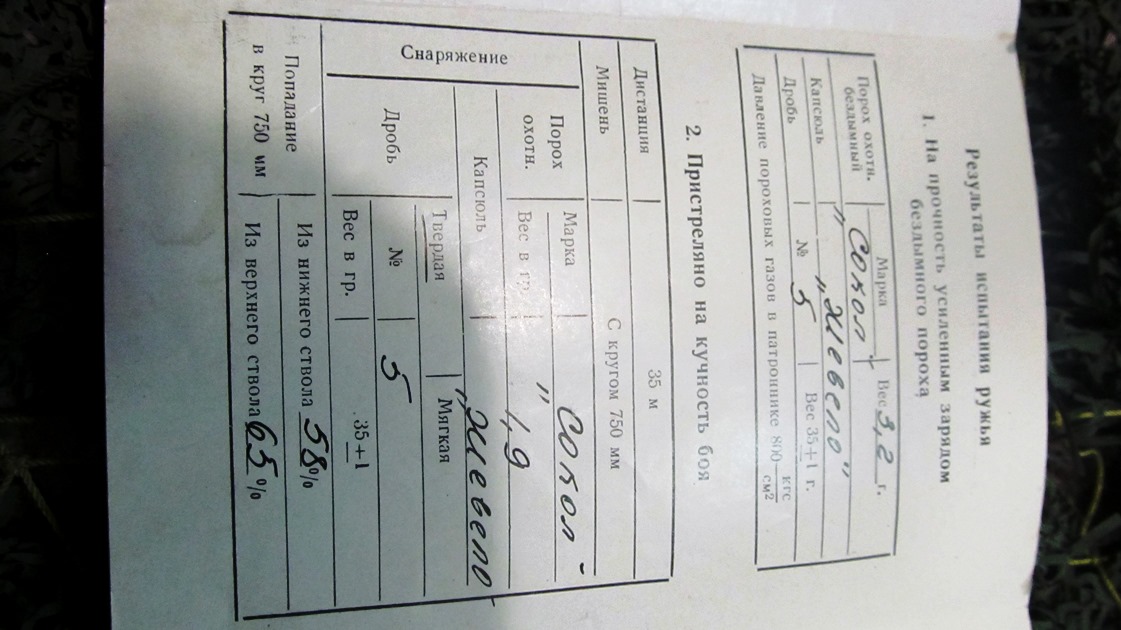 Результаты испытания ружья
1. На прочность усиленным зарядом
бездымного пороха
Порох охотн. Марка Вес 3,2 г.
бездымный „Сокол“
Капсюль „Жевело“
Дробь № 5 Вес 35+1 г.
Давление пороховых газов в патроннике 800 кгс/см²
2. Пристреляно на кучность боя
Дистанция 35 м
Мишень С кругом 750 мм
Снаряжение
Порох охотн. Марка „Сокол“
Вес в гр. 1,9
Капсюль „Жевело“
Дробь Твердая Мягкая
№ 5
Вес в гр. 35+1
Попадание Из нижнего ствола 58%
в круг 750 мм Из верхнего ствола 65%